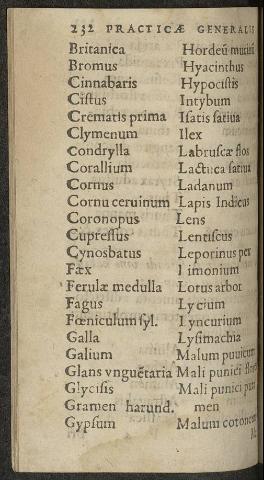 232 PRACTICÆ GENERALIS
Britanica
Bromus
Cinnabaris
Ciſtus
Crematis prima
Clymenum
Condrylla
Corallium
Cornus
Cornu ceruinum
Coronopus
Cupreſſus
Cynosbatus
Fæx
Ferulæ medulla
Fagus
Fœniculum ſyl.
Galla
Galium
Glans vnguẽtaria
Glyciſis
Gramen harund.
Gypſum
Hordeũ
Hyacinthus
Hypociſtis
Intybum
Iſatis ſatiua
Ilex
Labruſcæ flos
Lactuca ſatiua
Ladanum
Lapis Indicus
Lens
Lentiſcus
Leporinus pes
Limonium
Lotus arbor
Lycium
Lyncurium
Lyſimachia
Malum punicum
Mali punici
Mali punici
men
Malum